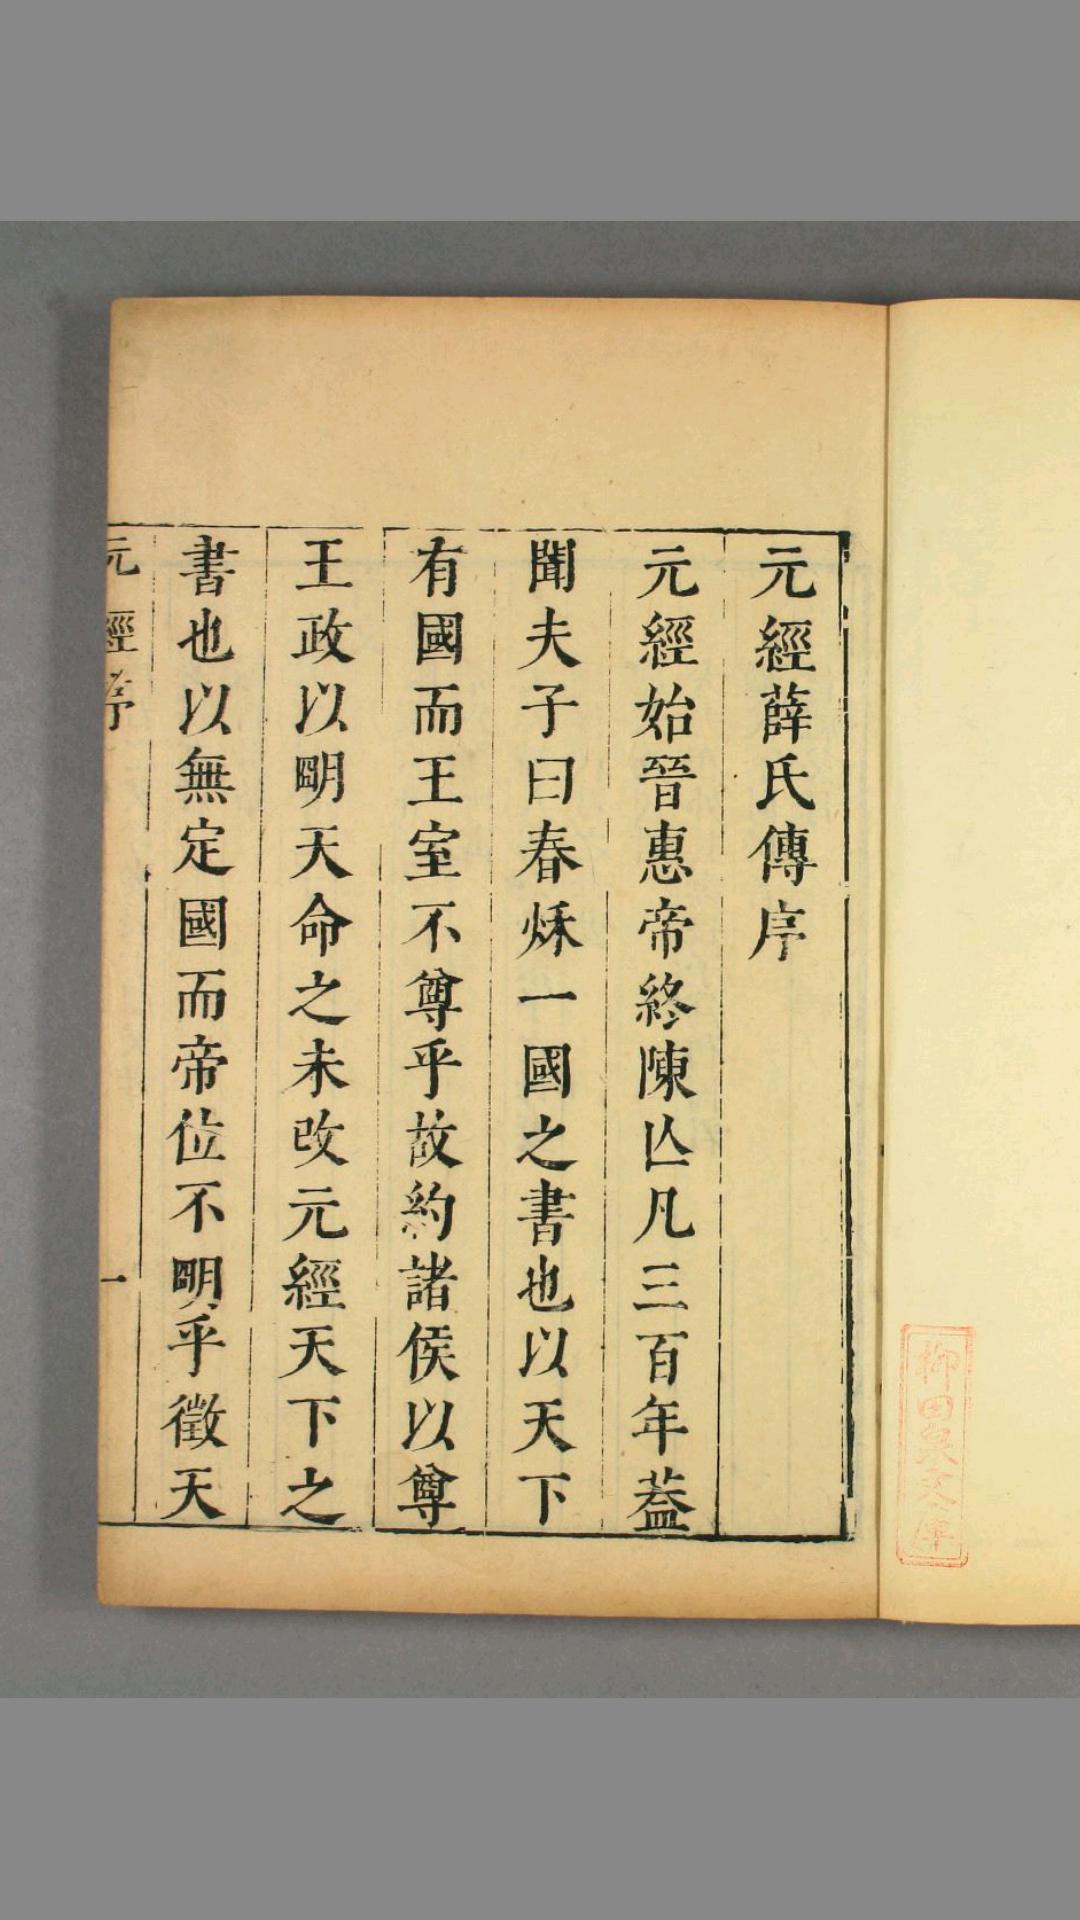 元經薛氏傳序
元經始晉惠帝終陳亾凡三百年葢
聞夫子曰春秌一國之書也以天下
有國而王室不尊乎故約諸侯以尊
王政以明天命之未改元經天下之
書也以無定國而帝位不明乎徵天
元經序
一
柳田泉文庫